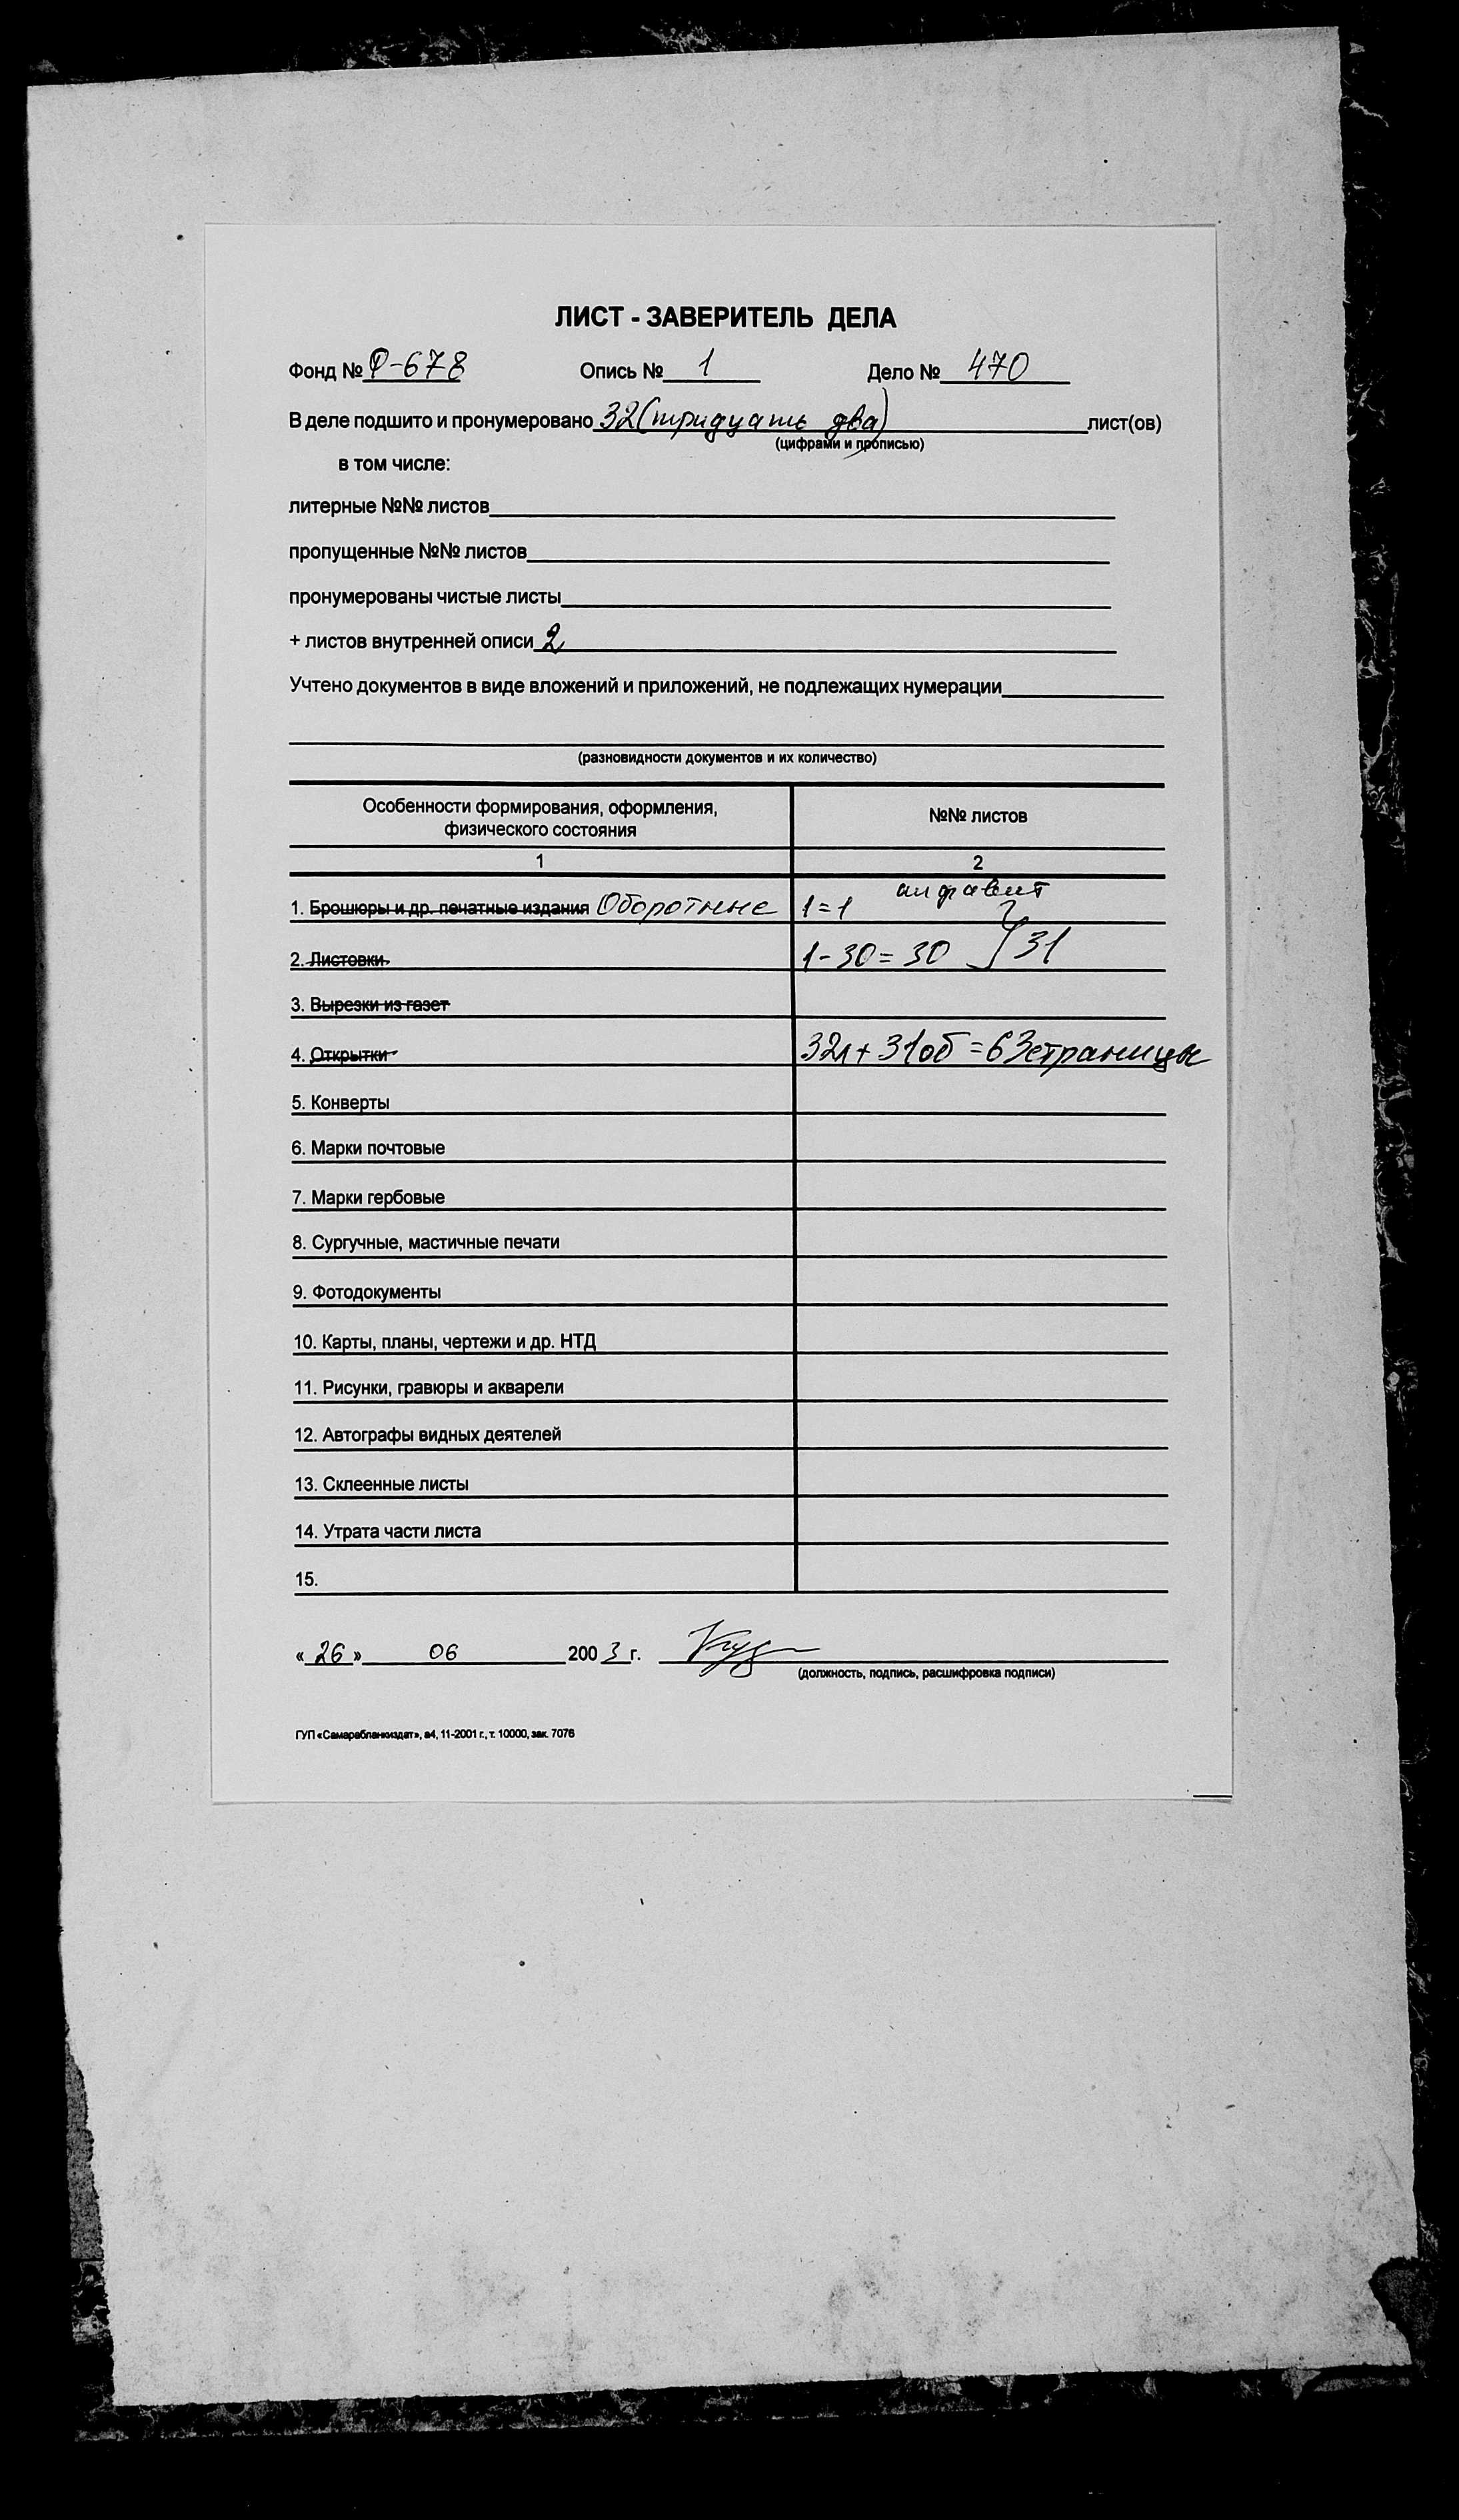 ЛИСТ - ЗАВЕРИТЕЛЬ ДЕЛА
Фонд № Р-678 Опись № 1 Дело № 470
В деле подшито и пронумеровано 32 (тридцать два) лист(ов)
(цифрами и прописью)
в том числе:
литерные №№ листов
пропущенные №№ листов
пронумерованы чистые листы
+ листов внутренней описи 2
Учтено документов в виде вложений и приложений, не подлежащих нумерации
(разновидности документов и их количество)
Особенности формирования, оформления, физического состояния №№ листов
1 2
алфавит
1. Брошюры и др. печатные издания Оборотные 1=1
2. Листовки 1-30=30 } 31
3. Вырезки из газет
4. Открытки 32л+31об=63страницы
5. Конверты
6. Марки почтовые
7. Марки гербовые
8. Сургучные, мастичные печати
9. Фотодокументы
10. Карты, планы, чертежи и др. НТД
11. Рисунки, гравюры и акварели
12. Автографы видных деятелей
13. Склеенные листы
14. Утрата части листа
15.
«26» 06 2003 г.
(должность, подпись, расшифровка подписи)
ГУП «Самарабланкиздат», а4, 11-2001 г., т. 10000, зак. 7076